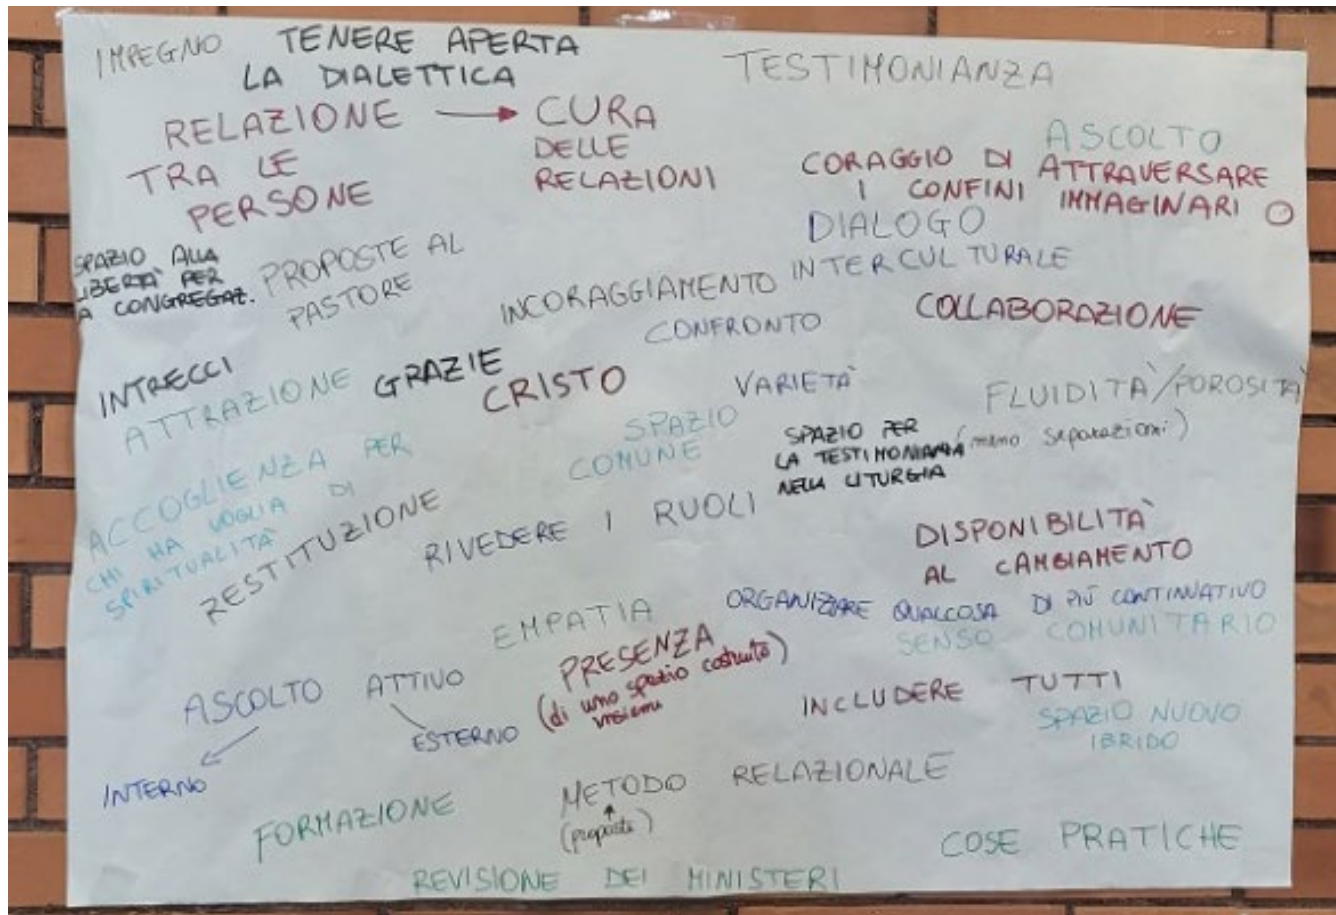 IMPEGNO
TENERE APERTA
LA DIALETTICA
TESTIMONIANZA
RELAZIONE → CURA
TRA LE
PERSONE
DELLE
RELAZIONI
ASCOLTO
CORAGGIO DI ATTRAVERSARE
I CONFINI IMMAGINARI
DIALOGO
INTERCULTURALE
SPAZIO ALLA
LIBERTÀ PER
A CONGREGAZ.
PROPOSTE AL
PASTORE
INCORAGGIAMENTO
CONFRONTO
COLLABORAZIONE
INTRECCI
ATTRAZIONE
GRAZIE
CRISTO
VARIETÀ
FLUIDITÀ/POROSITÀ
(meno separazioni)
SPAZIO
COMUNE
SPAZIO PER
LA TESTIMONIANZA
NELLA LITURGIA
ACCOGLIENZA PER
CHI HA VOGLIA DI
SPIRITUALITÀ
RESTITUZIONE
RIVEDERE I RUOLI
DISPONIBILITÀ
AL CAMBIAMENTO
EMPATIA
ORGANIZZARE QUALCOSA DI PIÙ CONTINUATIVO
SENSO COMUNITARIO
PRESENZA
(di uno spazio costruito)
insieme
ASCOLTO ATTIVO
ESTERNO
INTERNO
INCLUDERE TUTTI
SPAZIO NUOVO
IBRIDO
FORMAZIONE
METODO RELAZIONALE
(proposte)
COSE PRATICHE
REVISIONE DEI MINISTERI